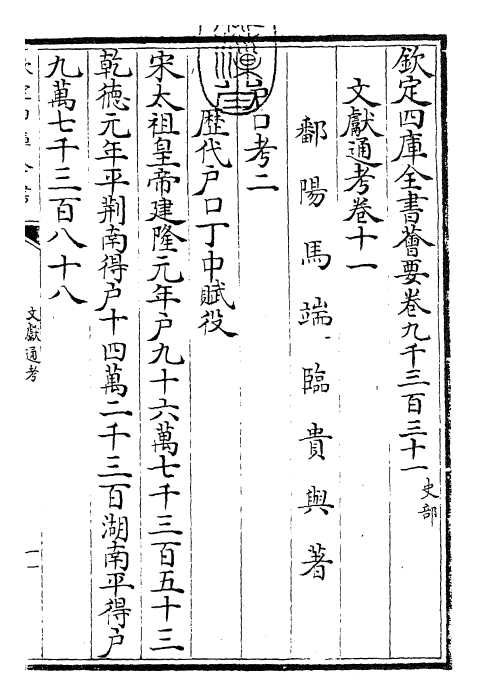 欽定四庫全書薈要卷九千三百三十一 史部
文獻通考卷十一
鄱陽馬端臨貴與著
戶口考二
歷代户口丁中賦役
宋太祖皇帝建隆元年户九十六萬七千三百五十三
乾德元年平荆南得户十四萬二千三百湖南平得户
九萬七千三百八十八
文獻通考
一